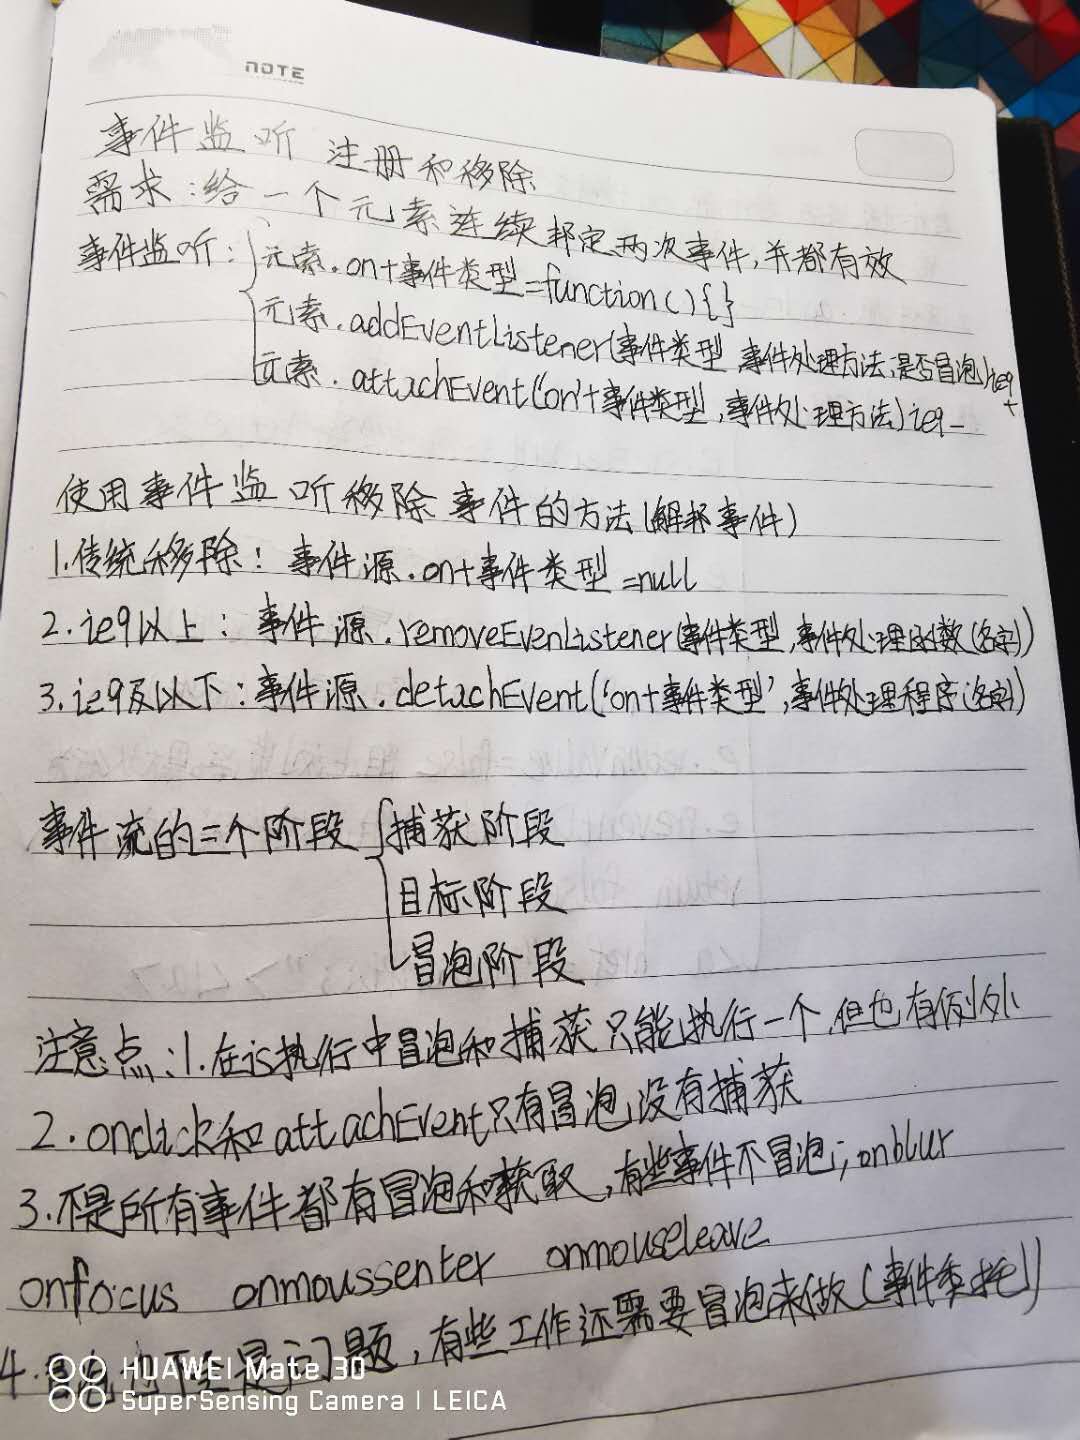 NOTE
事件监听 注册和移除
需求:给一个元素连续邦定两次事件,并都有效
事件监听: 元素.on+事件类型=function(){}
元素.addEventListener(事件类型,事件处理方法,是否冒泡)ie9+
元素.attachEvent('on'+事件类型,事件处理方法)ie9-
使用事件监听移除事件的方法(解邦事件)
1.传统移除!事件源.on+事件类型=null
2.ie9以上:事件源.removeEvenListener(事件类型,事件处理函数(名字))
3.ie9及以下:事件源.detachEvent('on+事件类型',事件处理程序(名字)
事件流的三个阶段 捕获阶段
目标阶段
冒泡阶段
注意点:1.在js执行中冒泡和捕获只能执行一个,但也有例外
2.onclick和attachEvent只有冒泡,没有捕获
3.不是所有事件都有冒泡和获取,有些事件不冒泡;onblur
onfocus onmoussenter onmouseleave
4. 是问题,有些工作还需要冒泡来做(事件委托))
HUAWEI Mate 30
SuperSensing Camera | LEICA